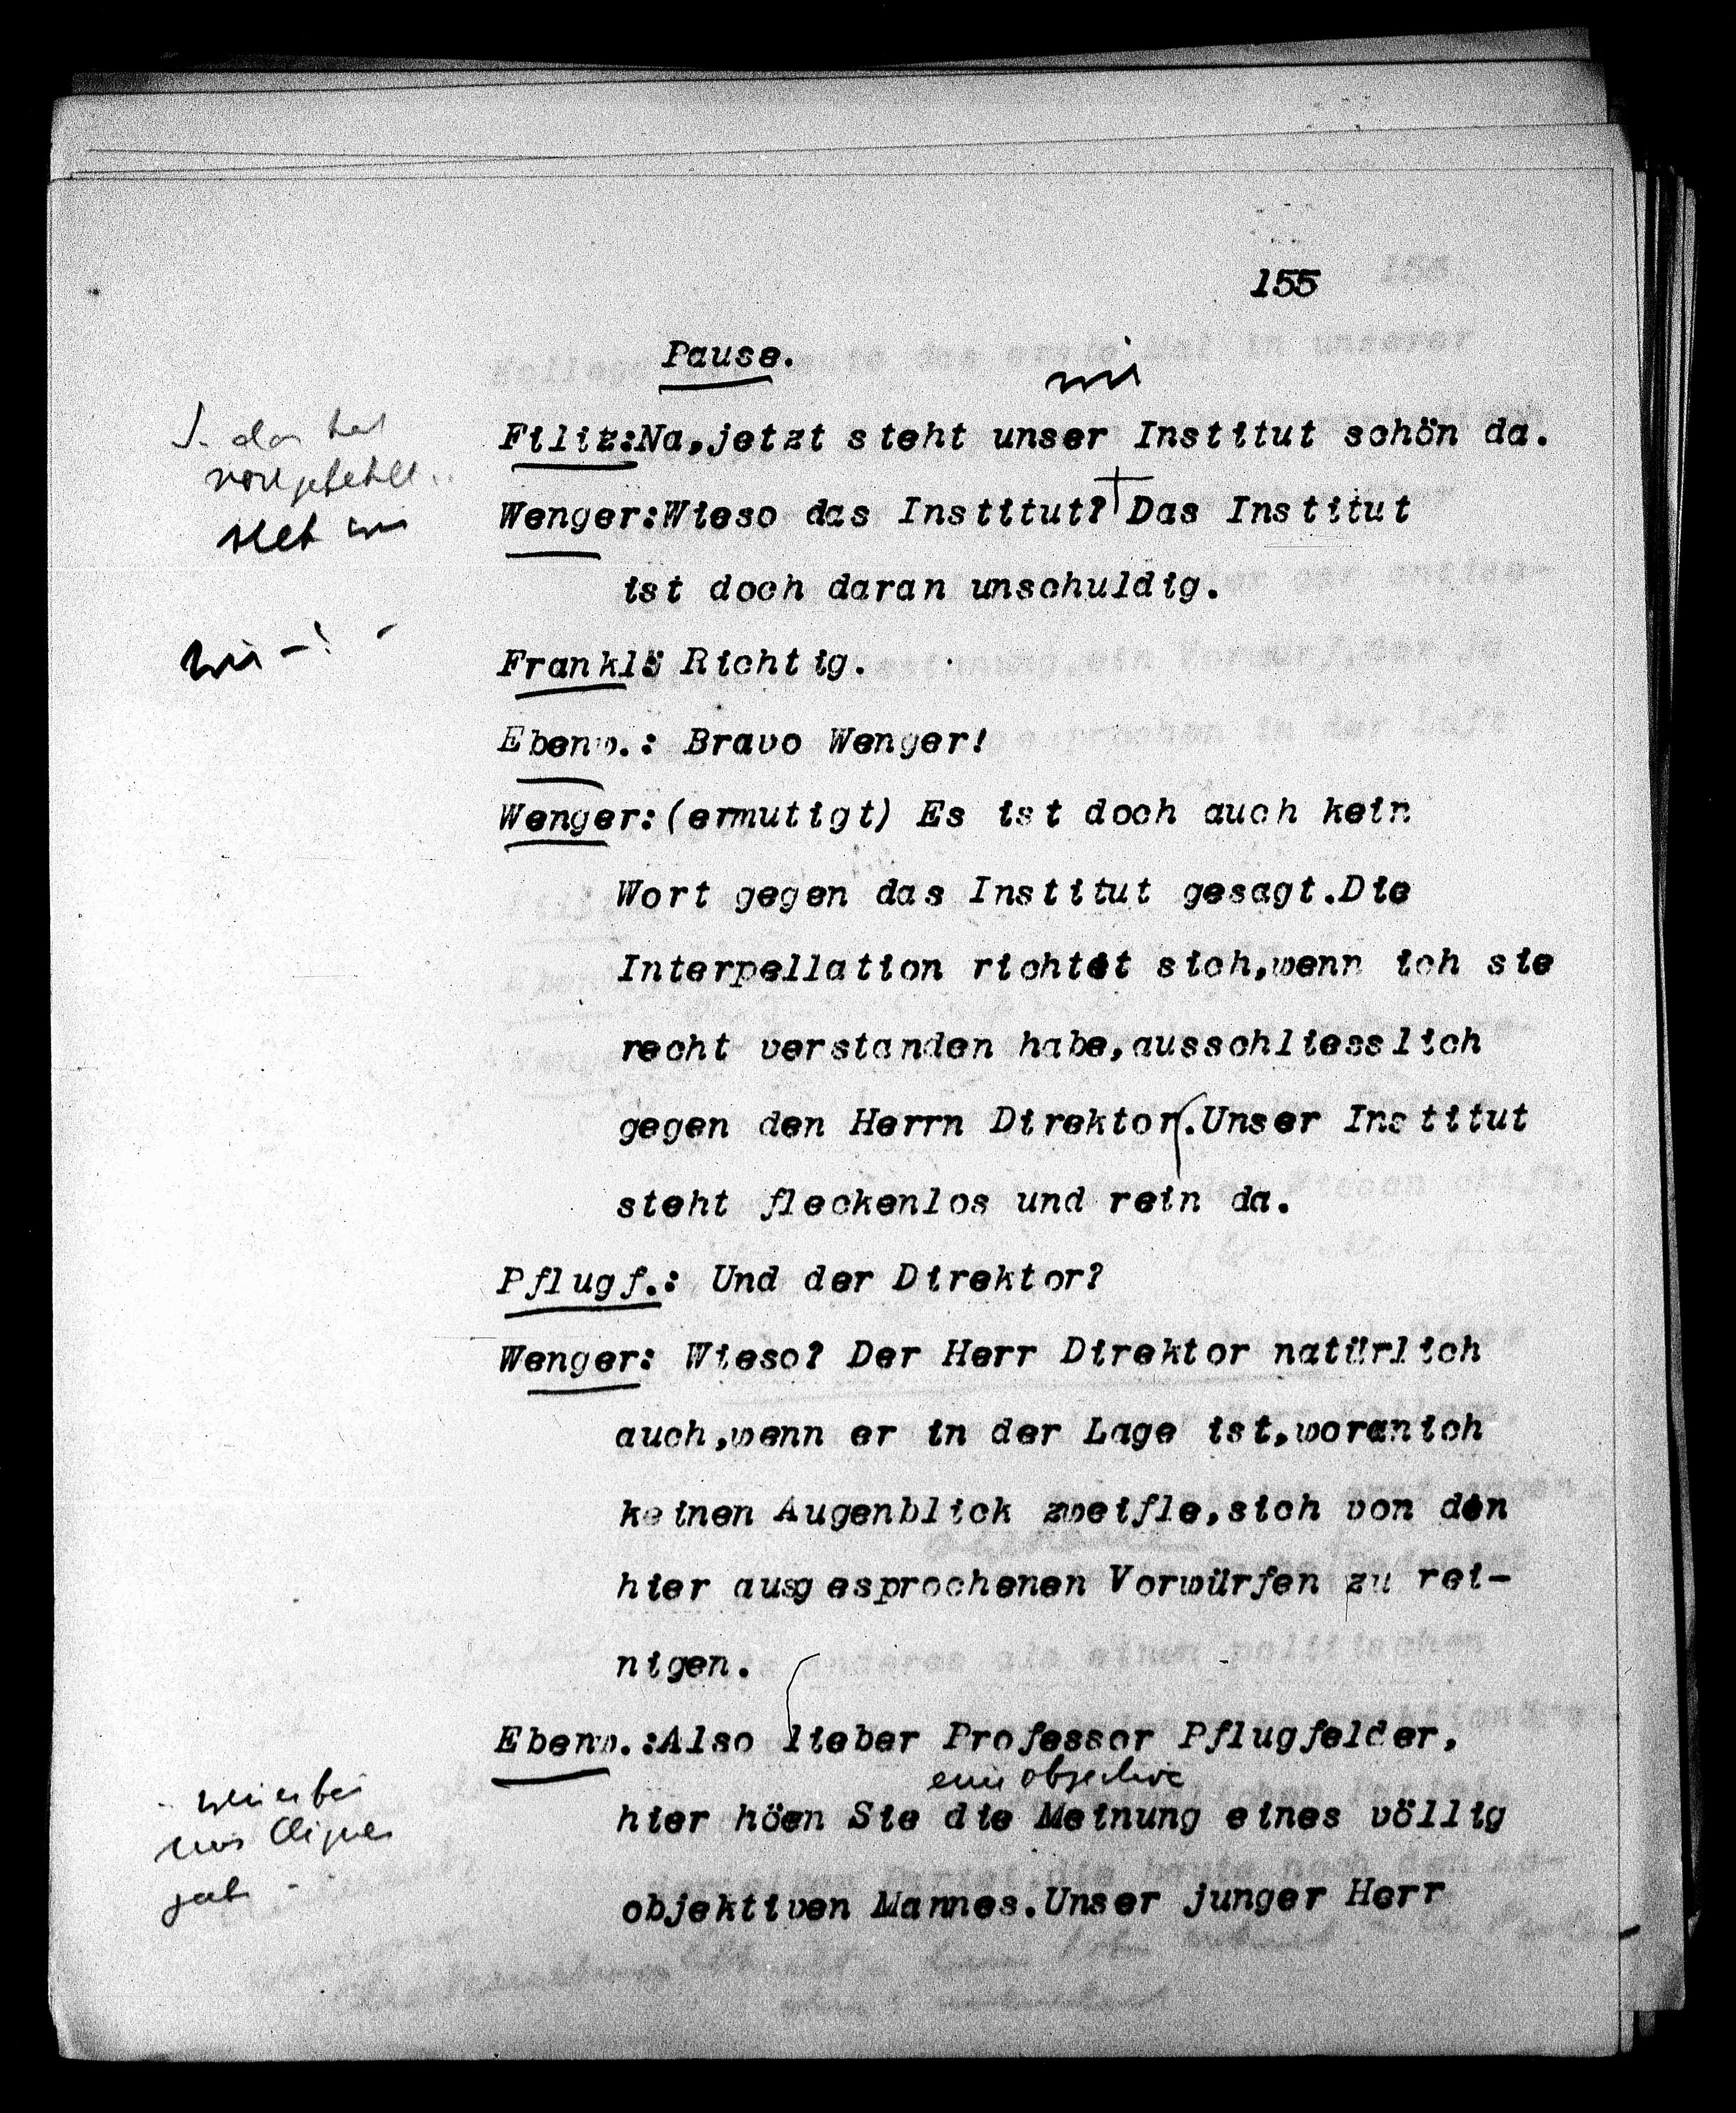 155
Pause.
Filitz:Na,jetzt steht unser Institut schön da.
Wenger:Wieso das Institut? Das Institut
ist doch daran unschuldig.
Frankl: Richtig.
Ebenw.: Bravo Wenger!
Wenger:(ermutigt) Es ist doch auch kein
Wort gegen das Institut gesagt.Die
Interpellation richtet sich,wenn ich sie
recht verstanden habe,ausschliesslich
gegen den Herrn Direktor.Unser Institut
steht fleckenlos und rein da.
Pflugf.: Und der Direktor?
Wenger: Wieso? Der Herr Direktor natürlich
auch,wenn er in der Lage ist,woranich
keinen Augenblick zweifle,sich von den
hier ausgesprochenen Vorwürfen zu rei-
nigen.
Ebenw.:Also lieber Professor Pflugfelder,
hier höen Sie die Meinung eines völlig
objektiven Mannes.Unser junger Herr